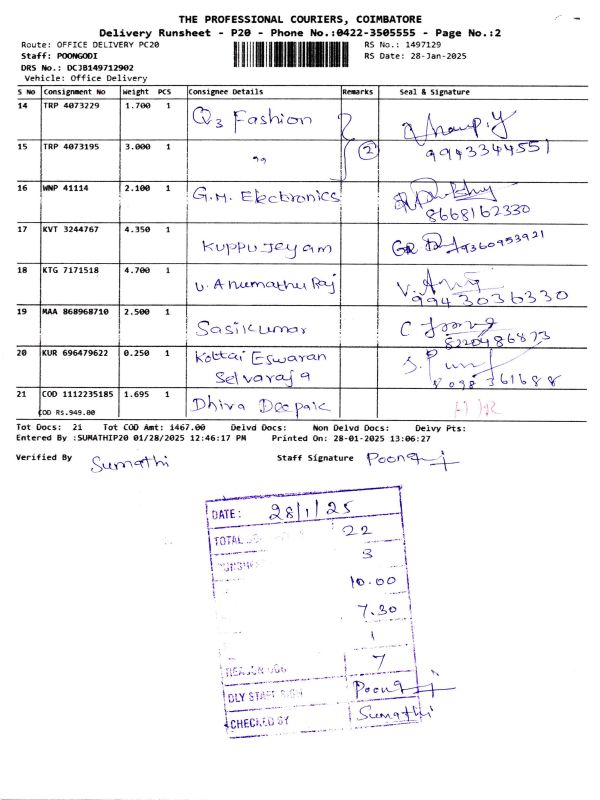 THE PROFESSIONAL COURIERS, COIMBATORE
Delivery Runsheet - P20 - Phone No.:0422-3505555 - Page No.:2
Route: OFFICE DELIVERY PC20
RS No.: 1497129
Staff: POONGODI
RS Date: 28-Jan-2025
DRS No.: DCJB149712902
Vehicle: Office Delivery
S No Consignment No Weight PCS Consignee Details Remarks Seal & Signature
14 TRP 4073229 1.700 1 Q3 Fashion
15 TRP 4073195 3.000 1 " 2 9943344551
16 WNP 41114 2.100 1 G.M. Electronics 8668162330
17 KVT 3244767 4.350 1 Kuppu Jeyam 9360953921
18 KTG 7171518 4.700 1 U. Anumathu Raj 9943036330
19 MAA 868968710 2.500 1 Sasikumar 8220486873
20 KUR 696479622 0.250 1 Kottai Eswaran
Selvaraja
21 COD 1112235185 1.695 1 Dhiva Deepak
COD Rs.949.00
Tot Docs: 21 Tot COD Amt: 1467.00 Delvd Docs: Non Delvd Docs: Delvy Pts:
Entered By :SUMATHIP20 01/28/2025 12:46:17 PM Printed On: 28-01-2025 13:06:27
Verified By Sumathi Staff Signature
DATE: 28/1/25
TOTAL 22
3
10.00
7.30
1
7
DLY STAFF SIGN
CHECKED BY Sumathi